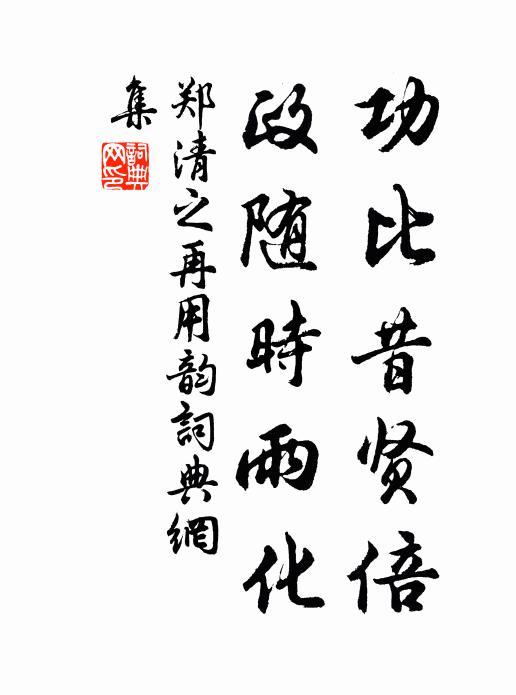 功比昔贤倍
政随時雨化
郑清之再用韵詞典網
集
詞典网印